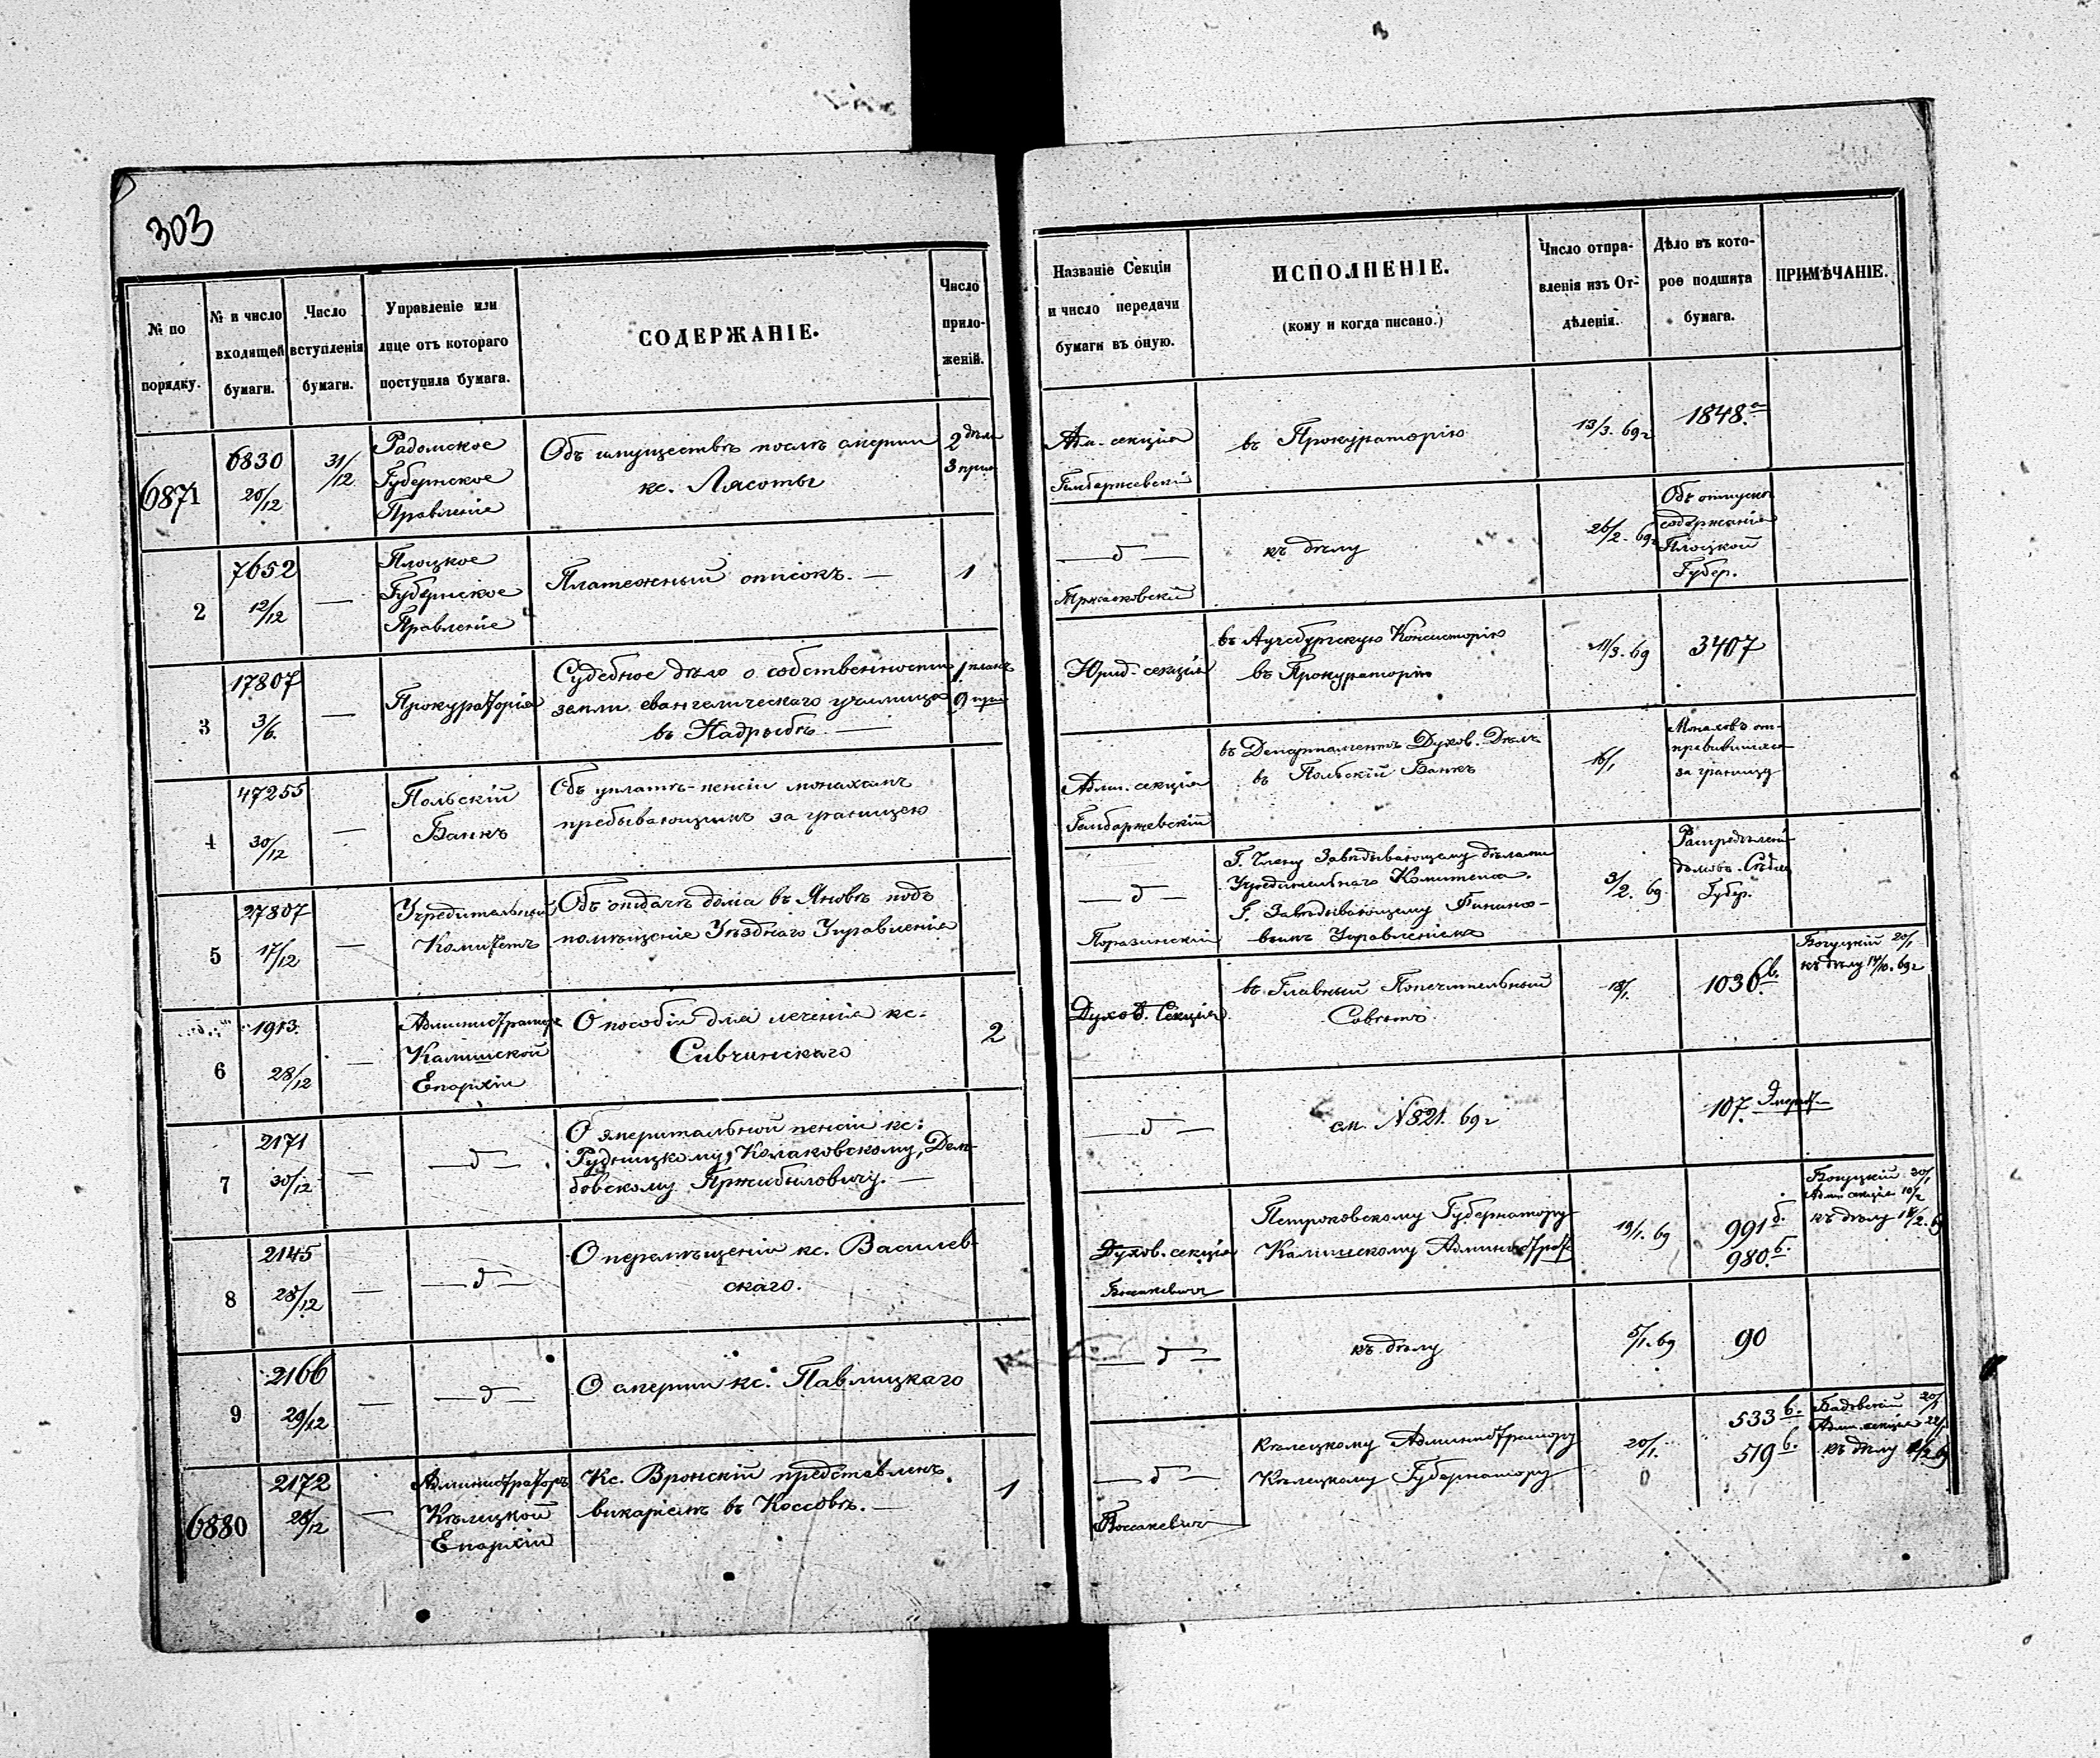 303
№ по порядку.
№ и число входящей бумаги.
Число вступленія бумаги.
Управленіе или лице отъ котораго поступила бумага.
СОДЕРЖАНІЕ.
Число прило-
женій.
6871
6830
20/12
31/12
Радомское
Губернское
Правленіе
Объ имуществѣ послѣ смерти
кс. Лясоты
2 дѣла
3 прил
2
7652
12/12
—
Плоцкое
Губернское
Правленіе
Платежный списокъ. —
1
3
17807
3/6.
—
Прокураторія
Судебное дѣло о собственности
земли евангелическаго училища
въ Надрыбѣ. —
1 планъ
9 при
4
47255
30/12
—
Польскій
Банкъ
Объ уплатѣ пенсіи монахамъ
пребывающимъ за границею
5
27807
17/12
—
Учредительный
Комитетъ
Объ отдачѣ дома въ Яновѣ подъ
помѣщеніе Уѣзднаго Управленія
6
1913.
28/12
—
Администраторъ
Калишской
Епархіи
О пособіи для леченія кс.
Сивчинскаго
2
7
2171
30/12
—
— д —
О эмеритальной пенсіи кс:
Рудницкому, Колаковскому, Дем-
бовскому Пржибыловичу. —
8
2145
28/12
—
— д —
О перемѣщеніи кс. Василев-
скаго.
9
2166
29/12
—
— д —
О смерти кс. Павлицкаго
6880
2172
28/12
—
Администраторъ
Кѣлецкой
Епархіи
Кс. Вронскій представленъ
викаріемъ въ Коссовъ. —
1
Названіе Секціи
и число передачи
бумаги въ оную.
ИСПОЛНЕНІЕ.
(кому и когда писано.)
Число отпра-
вленія изъ От-
дѣленія.
Дѣло въ кото-
рое подшита
бумага.
ПРИМѢЧАНІЕ.
Ад. секція
въ Прокураторію
13/3. 69г
1848.а
— д —
къ дѣлу
26/2. 69г
Объ отпускѣ
содержанія
Плоцкой
Губер.
Юрид. секція
въ Аугсбургскую Консисторію
въ Прокураторію
11/3. 69
3407
Адми. секція
въ Департаментъ Духов. Дѣлъ
въ Польскій Банкъ
16/1
Монаховъ от-
правившихся
за границу
— д —
Г. Члену Завѣдывающему дѣлами
Учредительнаго Комитета.
Г. Завѣдывающему Финансо-
вымъ Управленіемъ
3/2. 69
Губер.
Духов. Секція
въ Главный Попечительный
Совѣтъ
18/1.
1036в.
Богуцкій 20/1
къ дѣлу 14/10. 69г
— д —
см. N 821. 69г
107.
Духов. секція
Петроковскому Губернатору
Калишскому Администрат
19/1. 69
991б.
980б.
Богуцкій 30/1
Адми секція 10/2
къ дѣлу
— д —
къ дѣлу
5/1. 69
90
— д —
Кѣлецкому Администратору
Кѣлецкому Губернатору
20/1.
533в.
519в.
Адми. секція
къ дѣлу